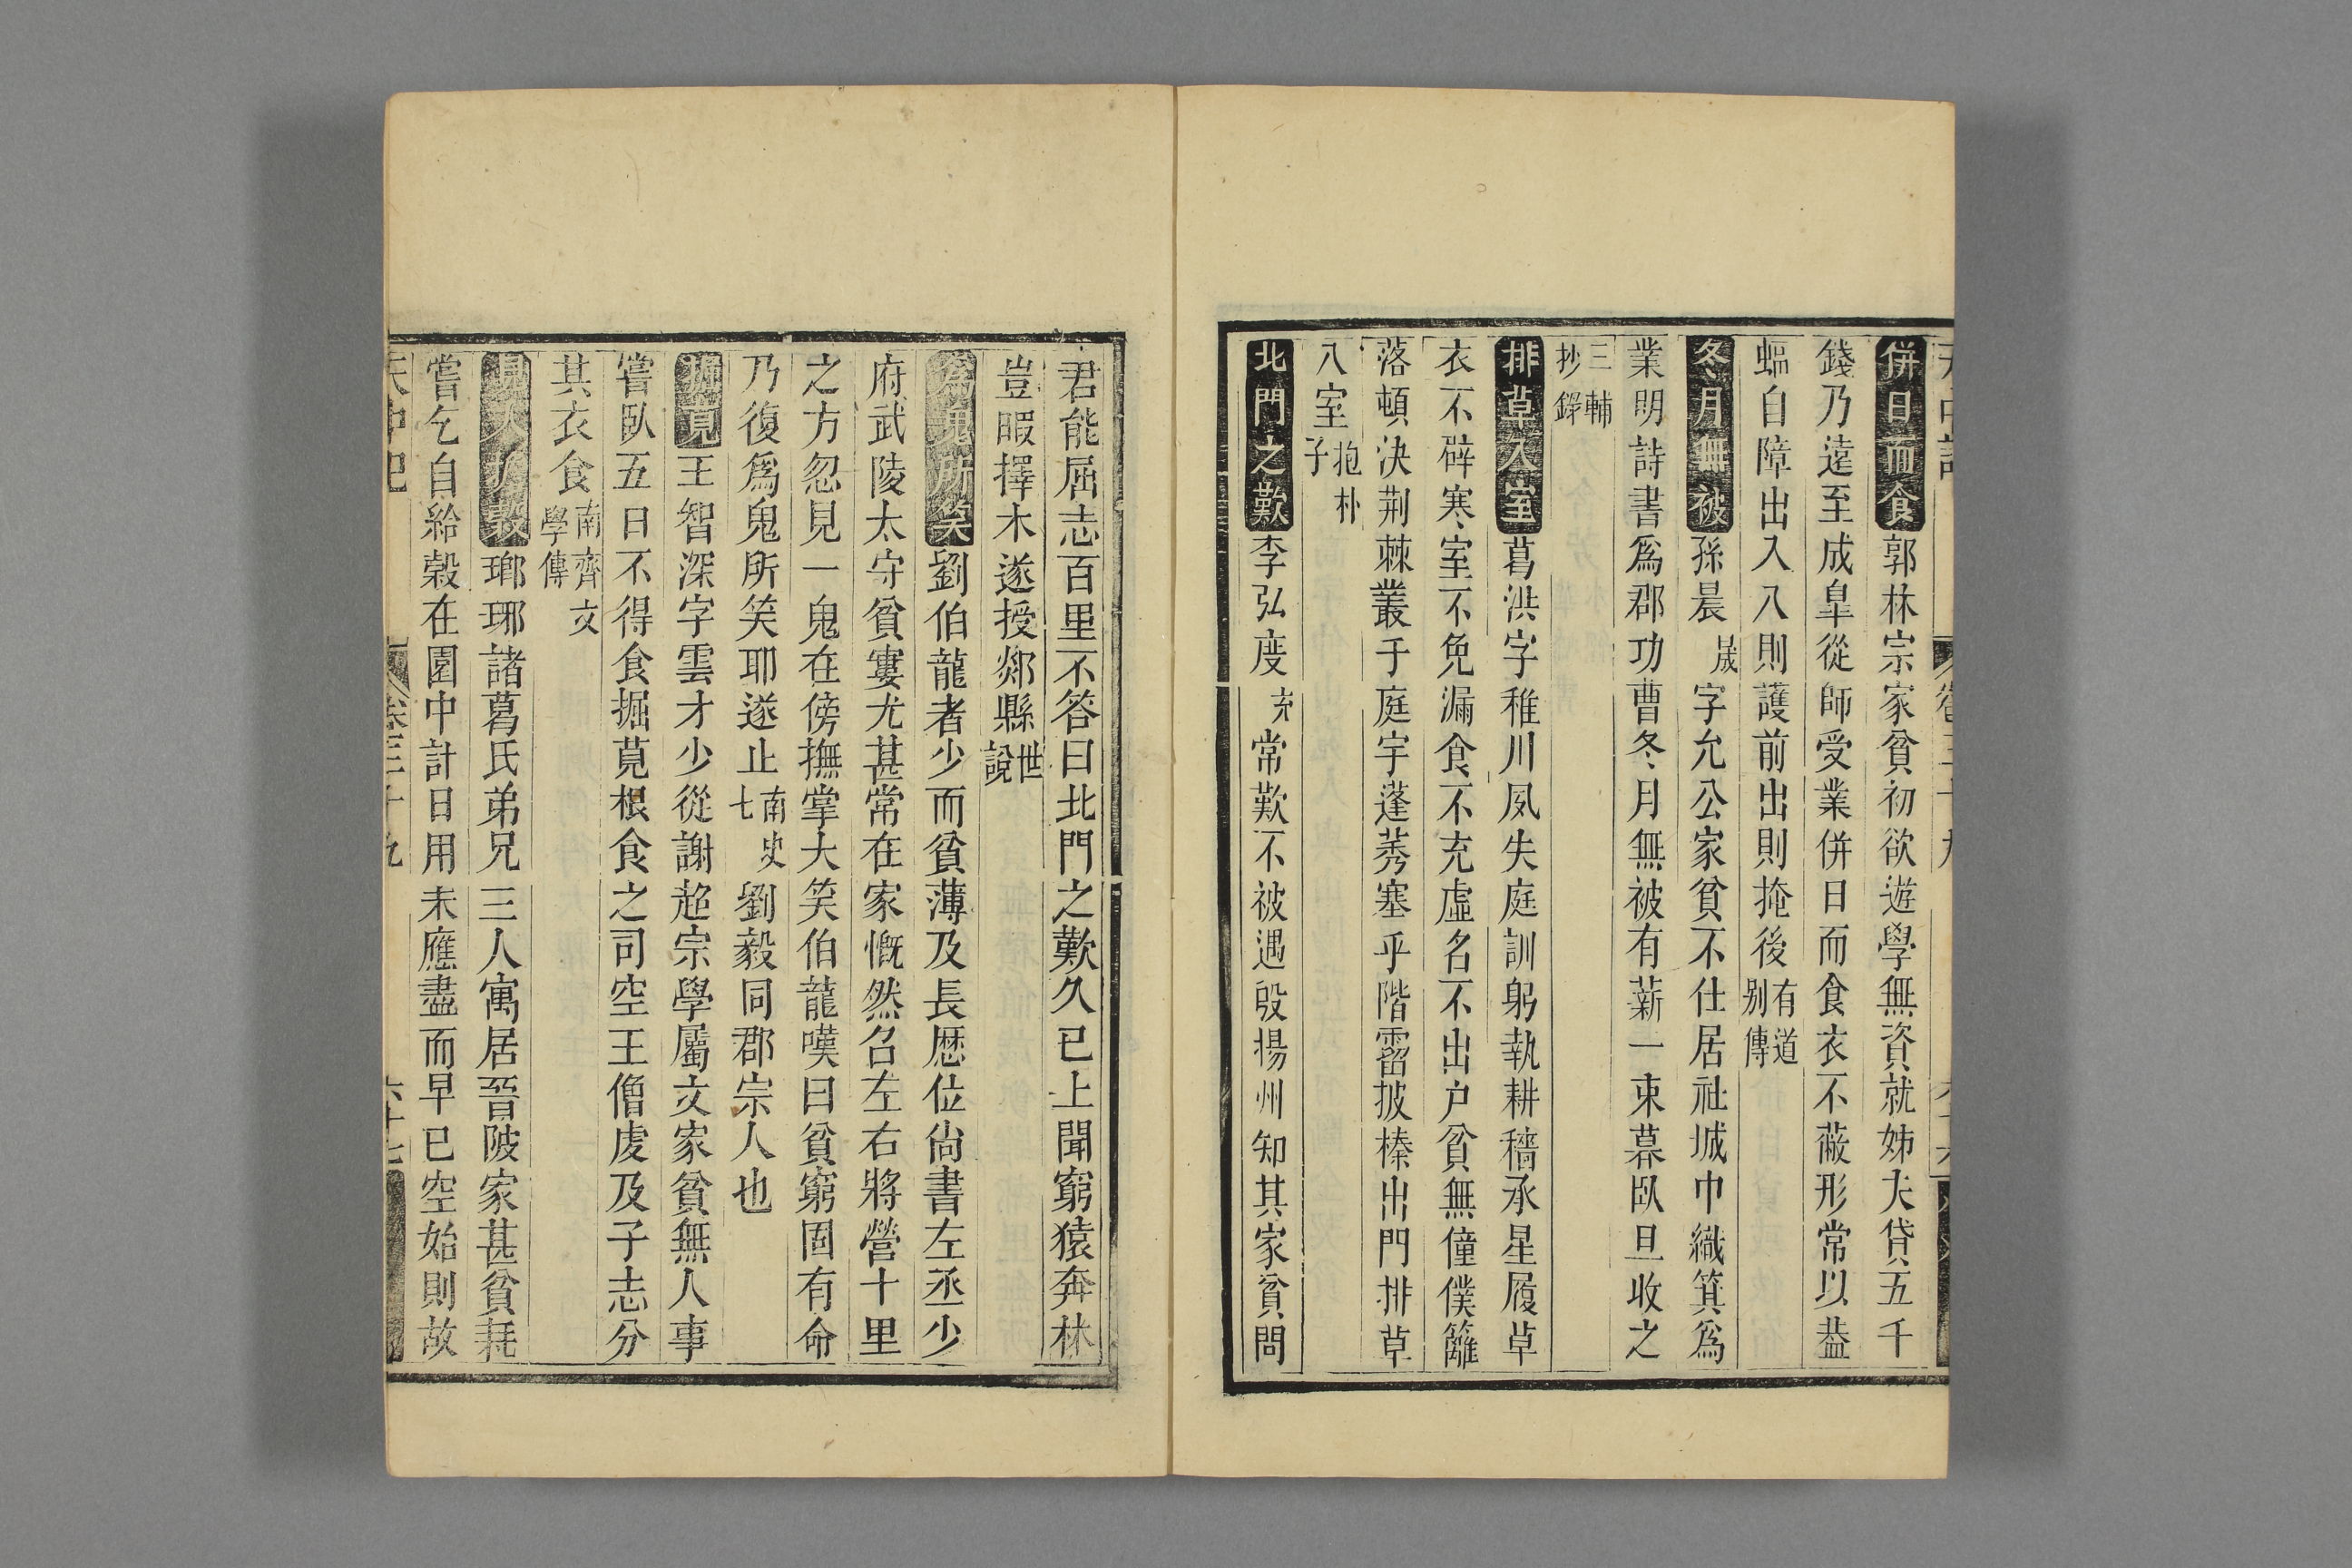 併日而食郭林宗家貧初欲遊學無資就姊夫貸五千
錢乃遠至成皐從師受業併日而食衣不蔽形常以葢
蝹自障出入入則護前出則掩後有道别傳
冬月無被孫晨晟字允公家貧不仕居社城中織箕爲
業明詩書爲郡功曹冬月無被有薪一束暮臥旦收之
三輔抄錄
排草入室葛洪字稚川夙失庭訓躬執耕穡承星履草
衣不辟寒室不免漏食不充虛名不出户貧無僮僕籬
落頓決荆棘叢于庭宇蓬莠塞乎階霤披榛出門排草
入室抱朴子
北門之歎李弘度充常歎不被遇殷揚州知其家貧問
君能屈志百里不答曰北門之歎久已上聞窮猿奔林
豈暇擇木遂授剡縣世說
爲鬼所笑劉伯龍者少而貧薄及長歷位尙書左丞少
府武陵太守貧寠尤甚常在家慨然召左右將營十里
之方忽見一鬼在傍撫掌大笑伯龍嘆曰貧窮固有命
乃復爲鬼所笑耶遂止南史七劉毅同郡宗人也
掘莧王智深字雲才少從謝超宗學屬文家貧無人事
嘗臥五日不得食掘莧根食之司空王僧虔及子志分
其衣食南齊文學傳
瑯琊諸葛氏弟兄三人寓居晉陵家甚貧耗
嘗乞自給榖在囷中計日用未應盡而早已空始則故
天中記 卷三十九 六十七